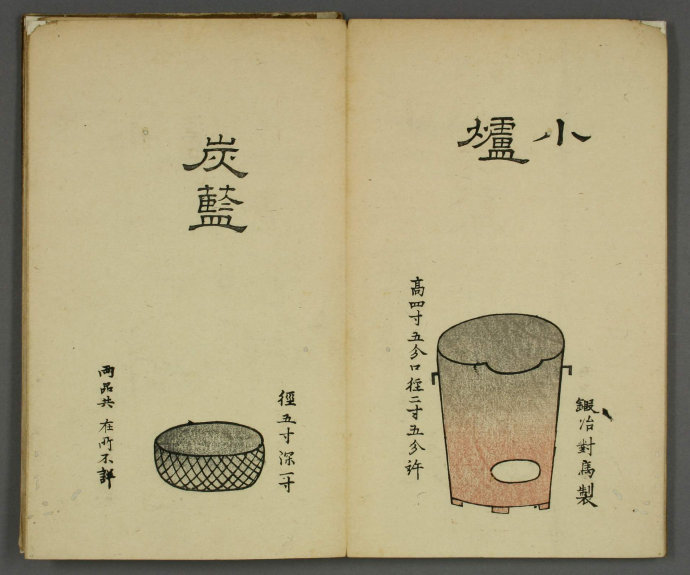 小爐
鍛冶對馬製
高四寸五分口徑二寸五分許
炭籃
徑五寸深一寸
両品共在所不詳